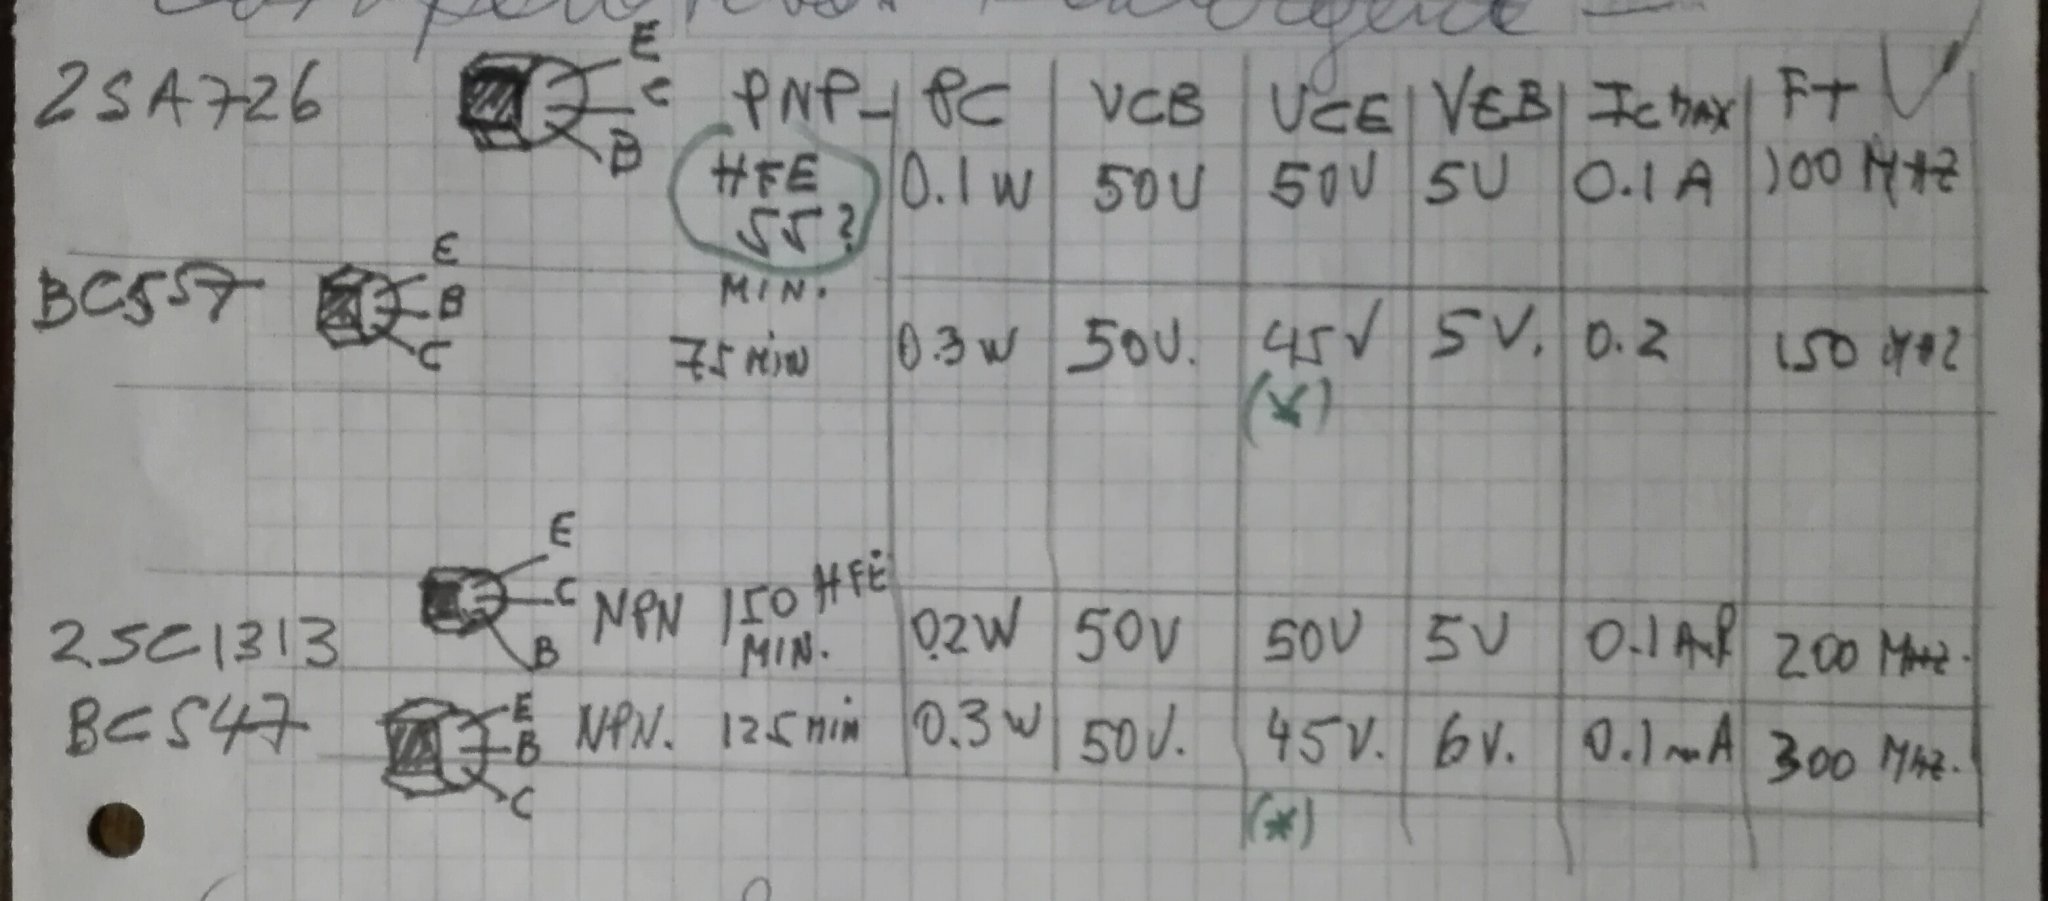 2SA726 E C B PNP- PC VCB VCE VEB Ic MAX FT
HFE 55? 0.1W 50V 50V 5V 0.1A 100 MHZ
MIN.
BC557 E B C 75 min 0.3W 50V. 45V 5V. 0.2 150 MHZ
(*)
2SC1313 E C B NPN 150 HFE MIN. 0.2W 50V 50V 5V 0.1 A 200 MHz.
BC547 E B C NPN. 125 min 0.3W 50V. 45V. 6V. 0.1mA 300 MHz.
(*)